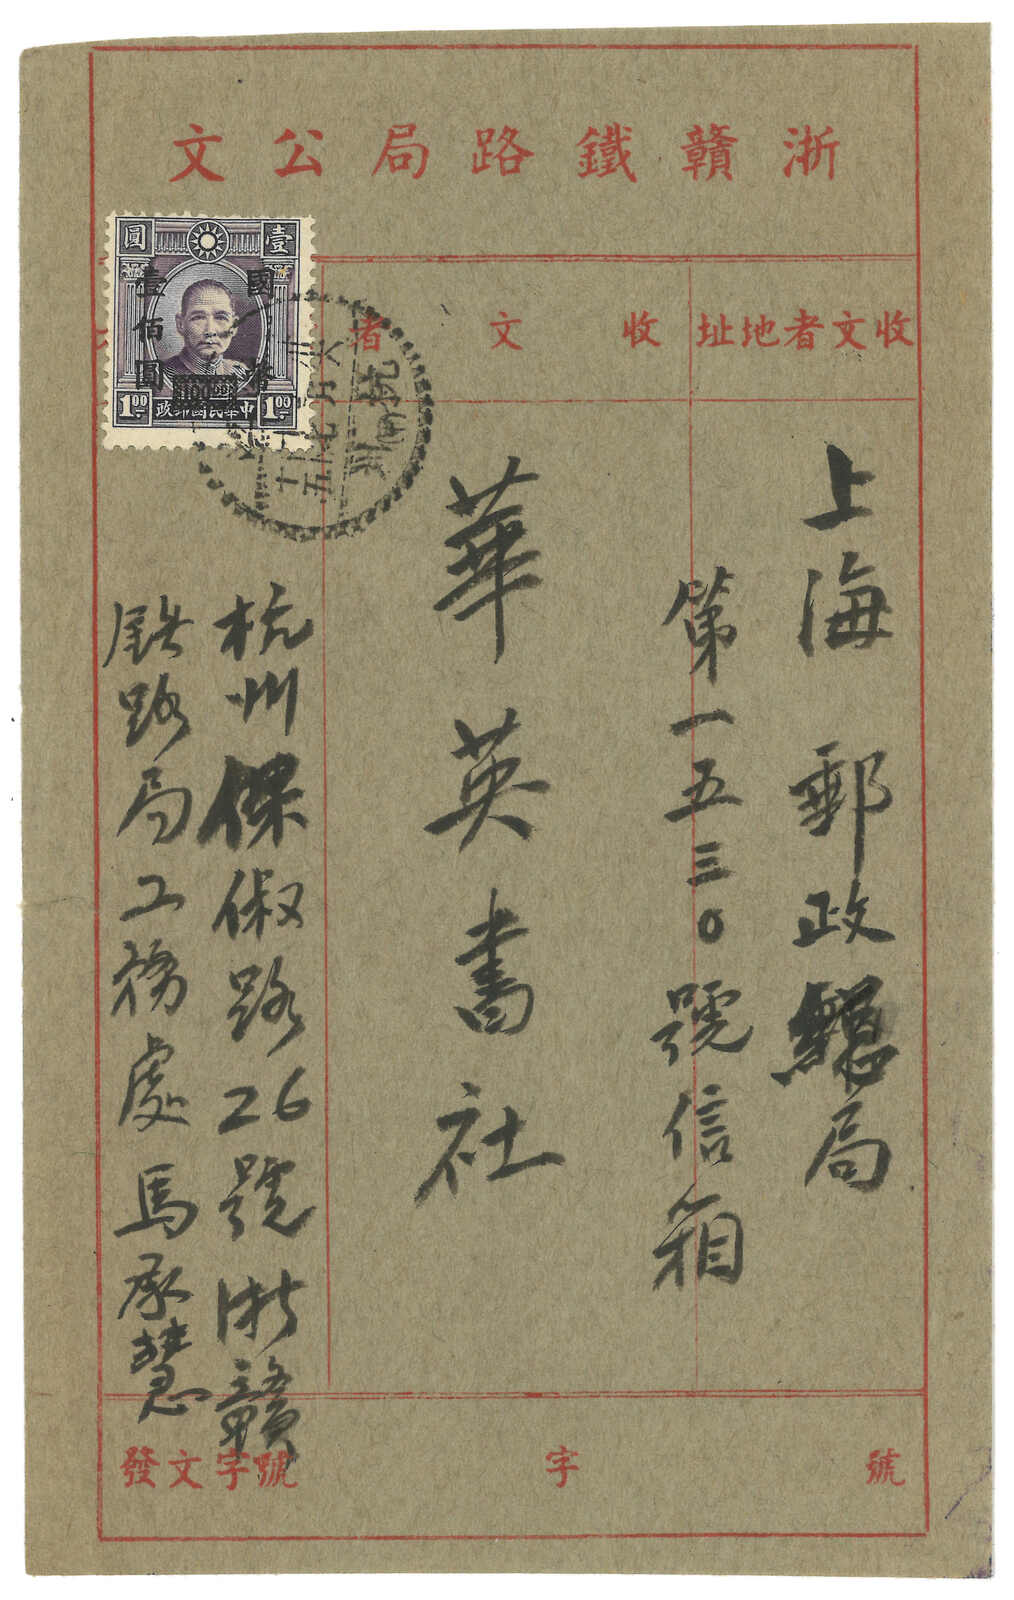 浙贛鐵路局公文
收文者地址
收文者
上海郵政總局
第一五三0號信箱
華英書社
杭州保俶路26號浙贛
鐵路局工務處馬承慧
圓壹
國幣
壹佰圓
100.00
1.00
1.00
政郵國民華中
杭州
發文字號
字
號